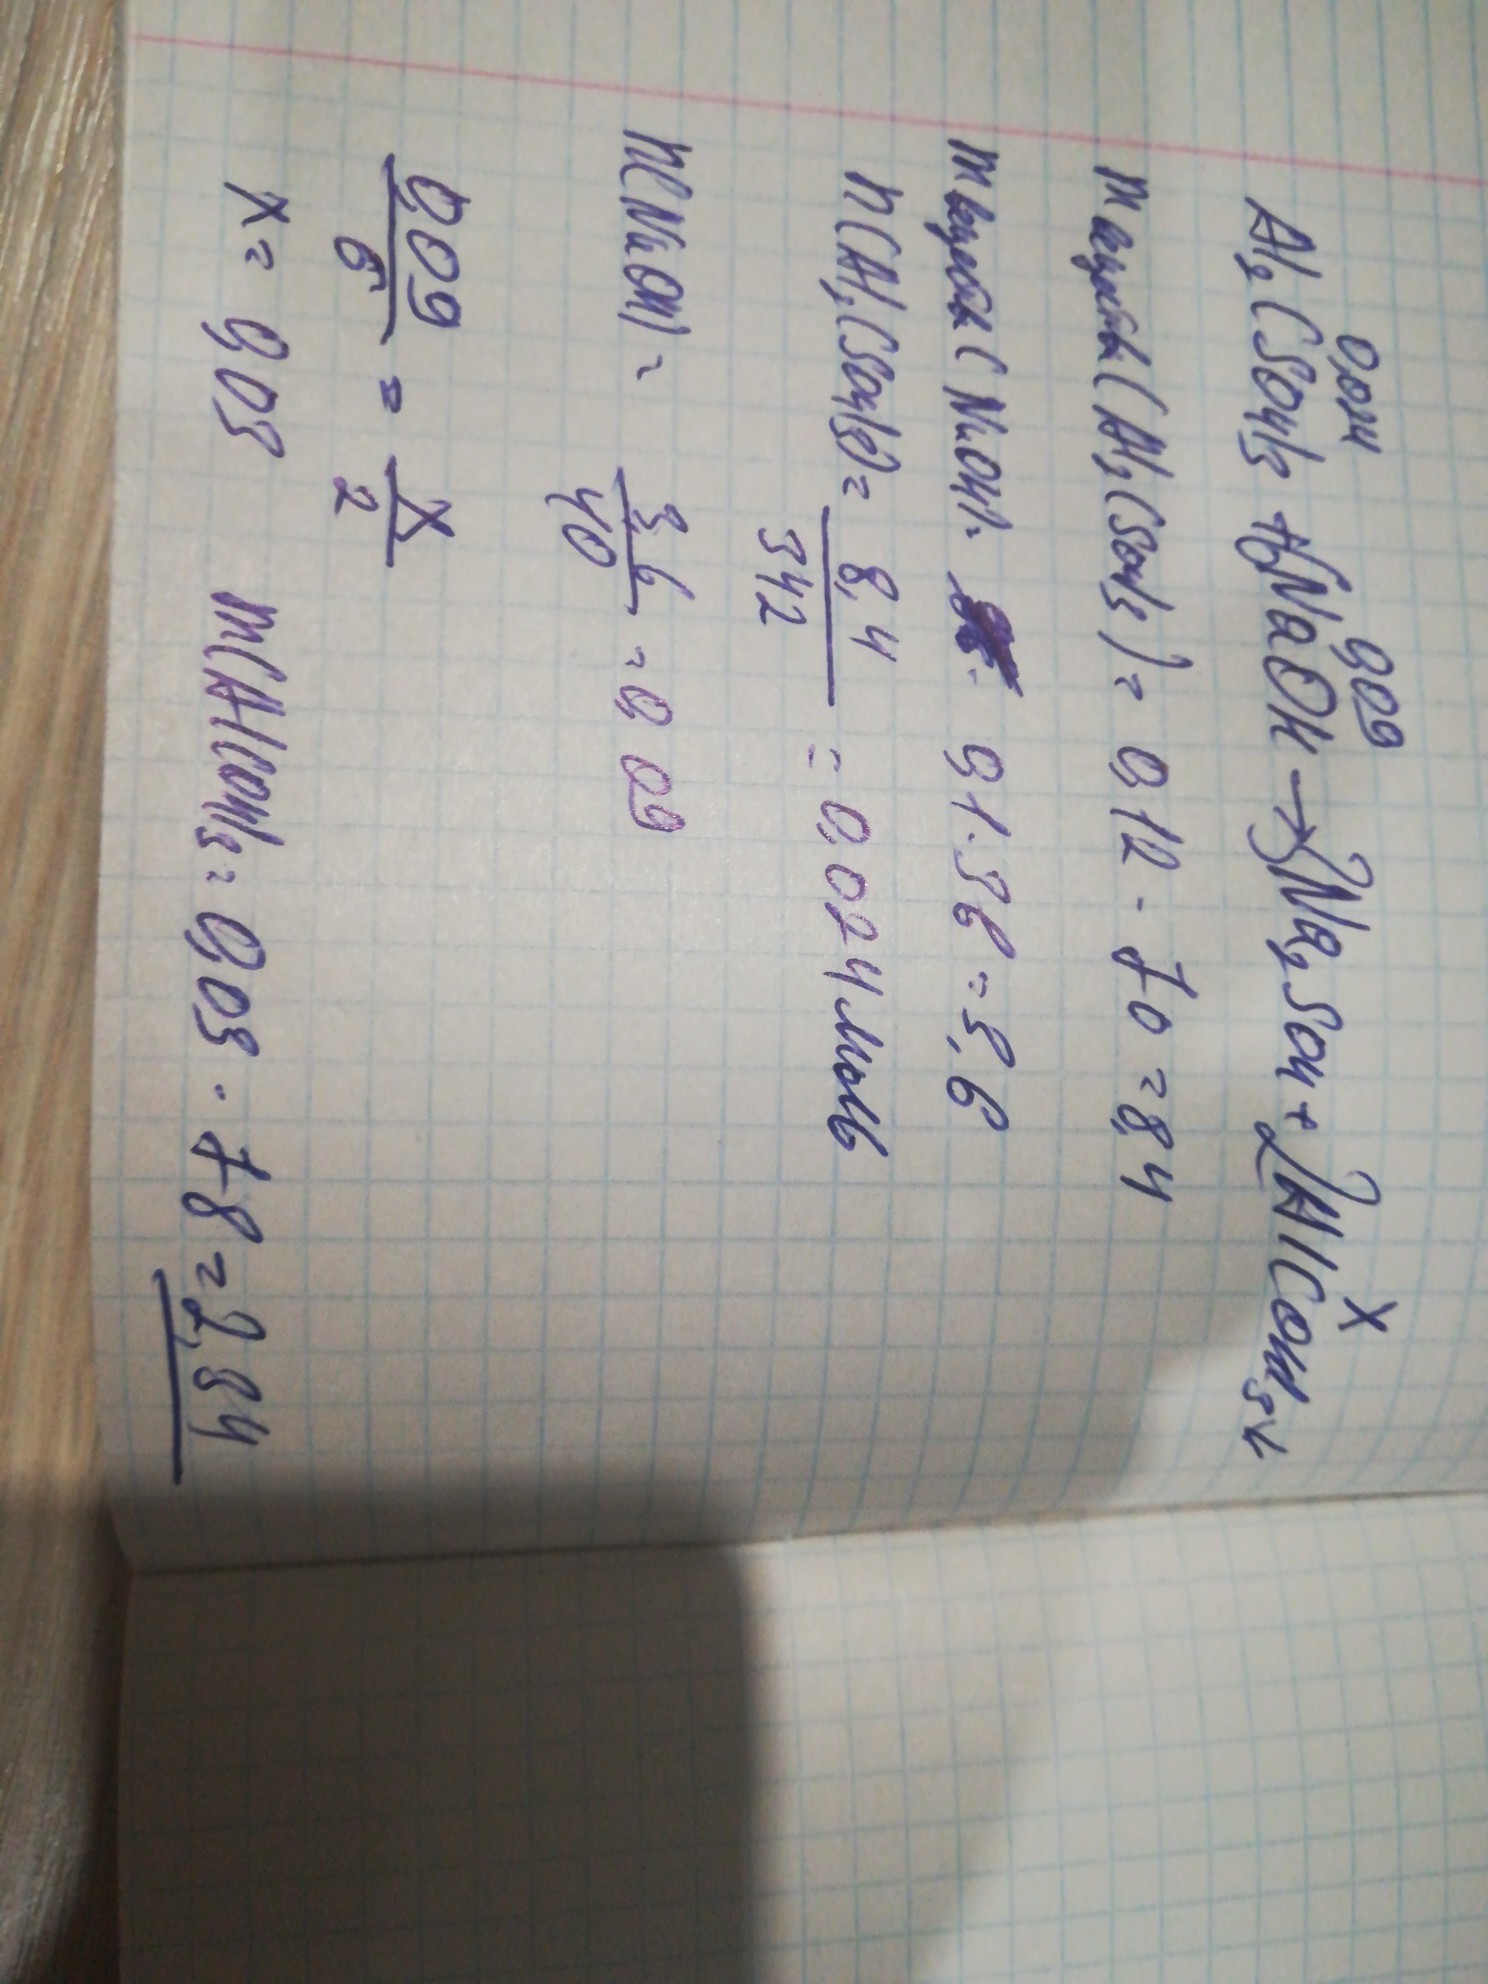 0,024 0,09 x
Al₂(SO₄)₃ + 6NaOH → 3Na₂SO₄ + 2Al(OH)₃↓
m вещества (Al₂(SO₄)₃) = 0,12 · 70 = 8,4
m вещества (NaOH) = 0,1 · 36 = 3,6
n(Al₂(SO₄)₃) = 8,4/342 = 0,024 моль
n(NaOH) = 3,6/40 = 0,09
0,09/6 = x/2
x = 0,03 m(Al(OH)₃ = 0,03 · 78 = 2,84